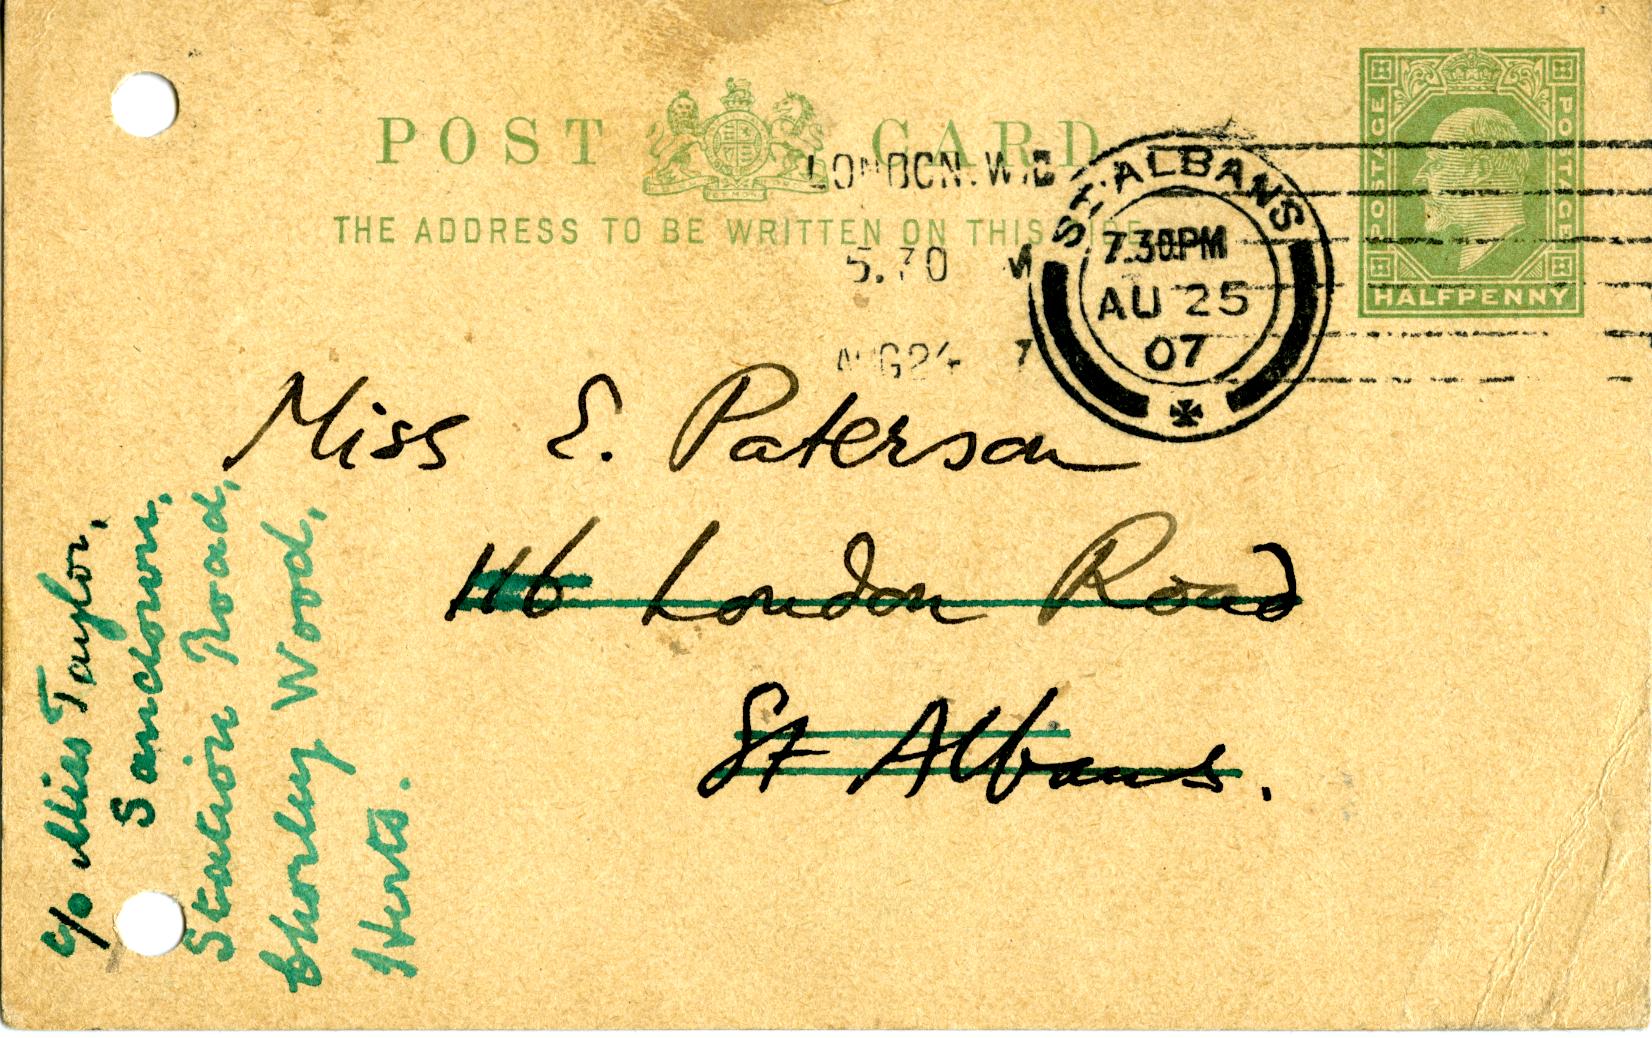 POST CARD
THE ADDRESS TO BE WRITTEN ON THIS SIDE
LONDON. W.C
5.30
AUG 24 7
ST. ALBANS
7.30PM
AU 25
07
POSTAGE
POSTAGE
HALFPENNY
Miss E. Paterson
116 London Road
St Albans.
c/o Miss Taylor,
Sandown,
Station Road,
Chorley Wood,
Herts.